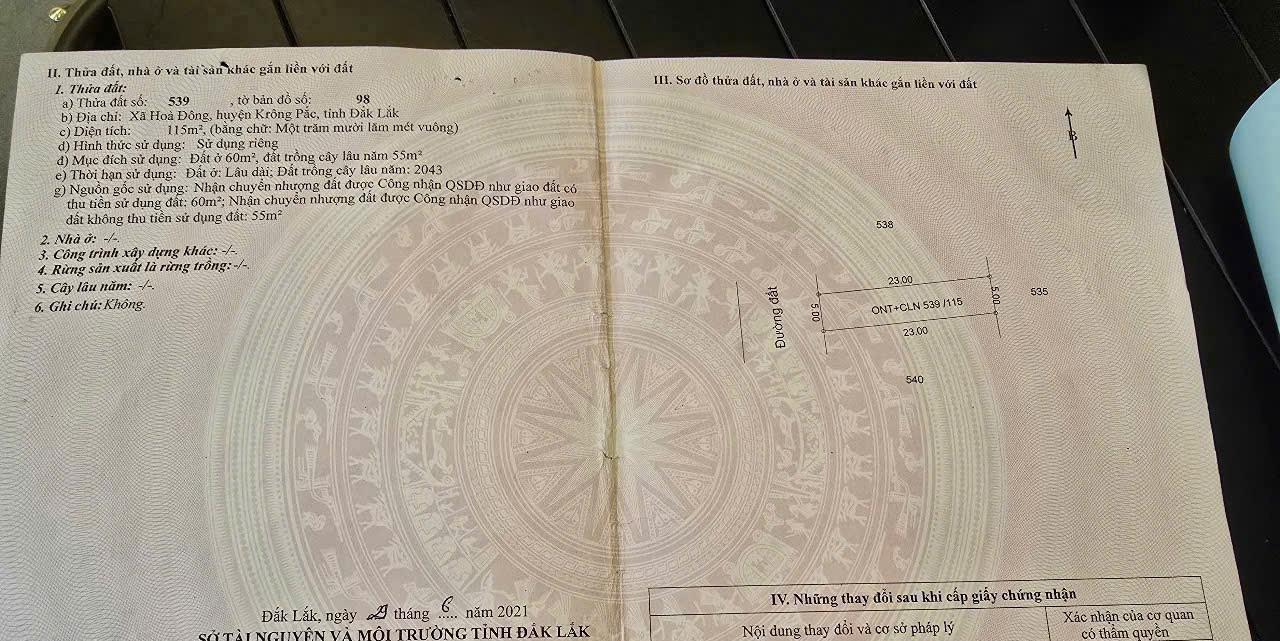 II. Thửa đất, nhà ở và tài sản khác gắn liền với đất
1. Thửa đất:
a) Thửa đất số: 539 , tờ bản đồ số: 98
b) Địa chỉ: Xã Hoà Đông, huyện Krông Pắc, tỉnh Đắk Lắk
c) Diện tích: 115m², (bằng chữ: Một trăm mười lăm mét vuông)
d) Hình thức sử dụng: Sử dụng riêng
đ) Mục đích sử dụng: Đất ở 60m², đất trồng cây lâu năm 55m²
e) Thời hạn sử dụng: Đất ở: Lâu dài; Đất trồng cây lâu năm: 2043
g) Nguồn gốc sử dụng: Nhận chuyển nhượng đất được Công nhận QSDĐ như giao đất có
thu tiền sử dụng đất: 60m²; Nhận chuyển nhượng đất được Công nhận QSDĐ như giao
đất không thu tiền sử dụng đất: 55m²
2. Nhà ở: -/-.
3. Công trình xây dựng khác: -/-.
4. Rừng sản xuất là rừng trồng: -/-.
5. Cây lâu năm: -/-.
6. Ghi chú: Không.
Đắk Lắk, ngày 29 tháng 6 năm 2021
SỞ TÀI NGUYÊN VÀ MÔI TRƯỜNG TỈNH ĐẮK LẮK
III. Sơ đồ thửa đất, nhà ở và tài sản khác gắn liền với đất
B
538
23.00
Đường đất
5.00
ONT+CLN 539 /115
5.00
535
23.00
540
IV. Những thay đổi sau khi cấp giấy chứng nhận
Nội dung thay đổi và cơ sở pháp lý
Xác nhận của cơ quan
có thẩm quyền